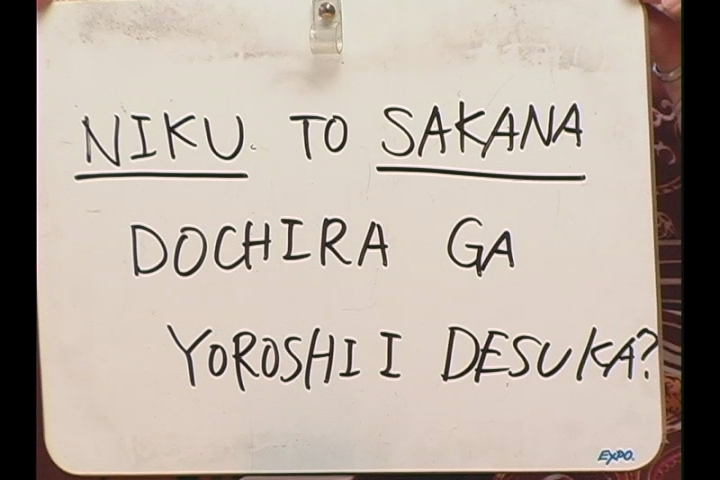 NIKU TO SAKANA
DOCHIRA GA
YOROSHII DESUKA?
EXPO.